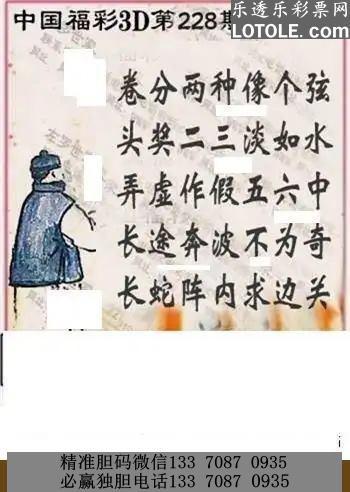 乐透乐彩票网
LOTOLE.COM
中国福彩3D第228期
卷分两种像个弦
头奖二三淡如水
弄虚作假五六中
长途奔波不为奇
长蛇阵内求边关
精准胆码微信133 7087 0935
必赢独胆电话133 7087 0935